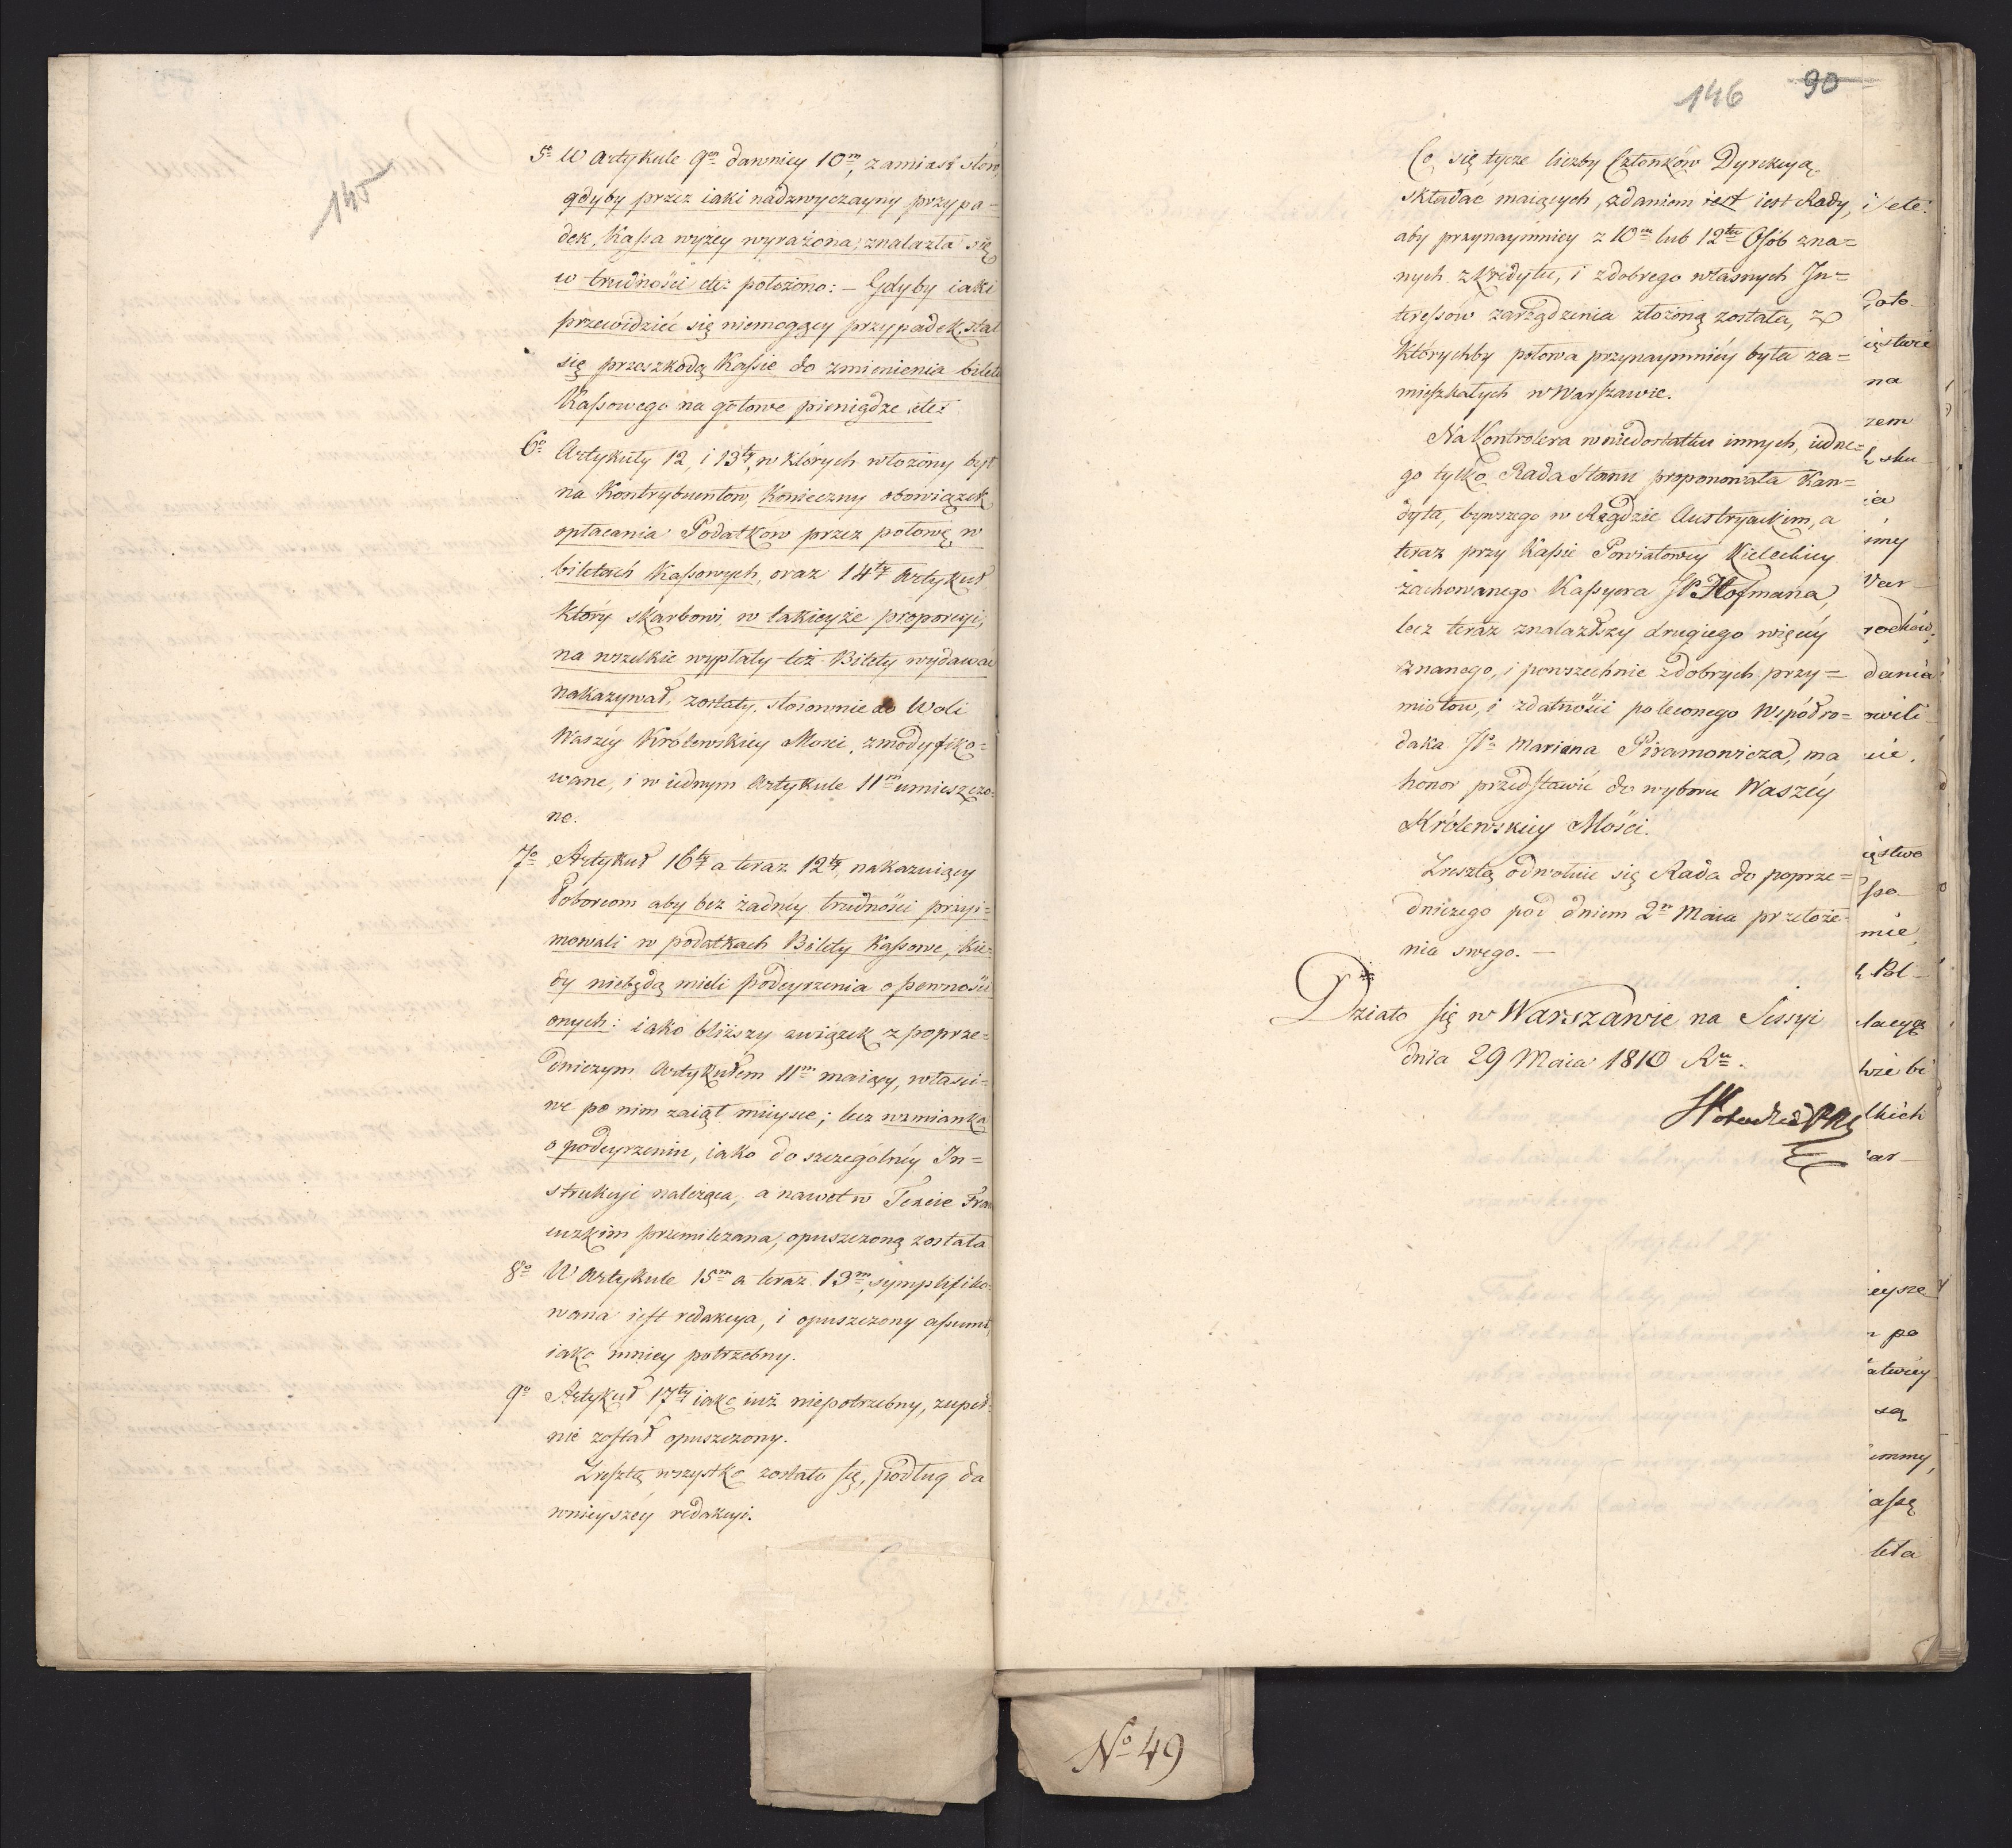 145
5o W Artykule 9m dawniey 10m, zamiast słów,
gdyby przez iaki nadzwyczayny przypa-
dek, Kassa wyżey wyrażona, znalazła się
w trudności etc: położono: – Gdyby iaki
przewidzieć się niemogący przypadek, stał
się przeszkodą Kassie do zmienienia biletu
Kassowego na gotowe pieniądze etc:
6o Artykuły 12, i 13ty, w których włożony był
na Kontrybuentów, konieczny obowiązek
opłacania Podatków przez połowę, w
biletach Kassowych, oraz 14ty Artykuł
który skarbowi w takieyże proporcyi,
na wszelkie wypłaty też Bilety wydawać
nakazywał, zostały, stosownie do Woli
Waszéy Królewskiey Mosci, zmodyfiko=
wane, i w iednym Artykule 11m umieszczo=
ne.
7o Artykuł 16ty a teraz 12ty, nakazuiący
Poborcom aby bez żadnéy trudności przyi=
mowali w podatkach Bilety Kassowe, kie=
dy niebędą mieli podeyrzenia o pewności
onych: iako bliższy związek z poprze=
dniczym Artykułem 11m maiący, właści=
we po nim zaiął mieysce; lecz wzmianka
o podeyrzeniu, iako do szczególnéy In=
strukcyi należąca, a nawet w Texcie Fran
cuzkim przemilczana, opuszczoną została
8o W Artykule 15m a teraz 13m, symplifiko=
wana iest redakcya, i opuszczony assumt,
iako mniey potrzebny.
9o Artykuł 17ty iako iuż niepotrzebny, zupeł=
nie został opuszczony.
Zresztą wszystko zostało się, podług da
wnieyszéy redakcyi.
146 90
Co się tycze liczby Członków Dyrekcyą
składać maiących, zdaniem iest iest Rady,
aby przynaymniey z 10m lub 12tu Osób zna=
nych z kredytu, i z dobrego własnych In=
teressów zarządzenia złożoną została, z
którychby połowa przynaymniéy była za=
mieszkałych w Warszawie.
Na Kontrolera w niedostatku innych, iedne=
go tylko Rada Stanu proponowała Kan=
dyta, bywszego w Rządzie Austryackim, a
teraz przy Kassie Powiatowey Kieleckiey
zachowanego Kassyera JP. Hofmana,
lecz teraz znalazłszy drugiego więcéy
znanego, i powszechnie z dobrych przy=
miotów, i zdatności poleconego Współro=
daka JPa Mariana Piramowicza, ma
honor przedstawić do wyboru Waszéy
Królewskiey Mości.
Zresztą odwołuie się Rada do poprze=
dniczego pod dniem 2m Maia przełoże=
nia swego. –
Działo się w Warszawie na Sessyi
dnia 29 Maia 1810 Ru.
i etc:
goto
na
zem
dania
nie.
mie
lkich
są
No 49